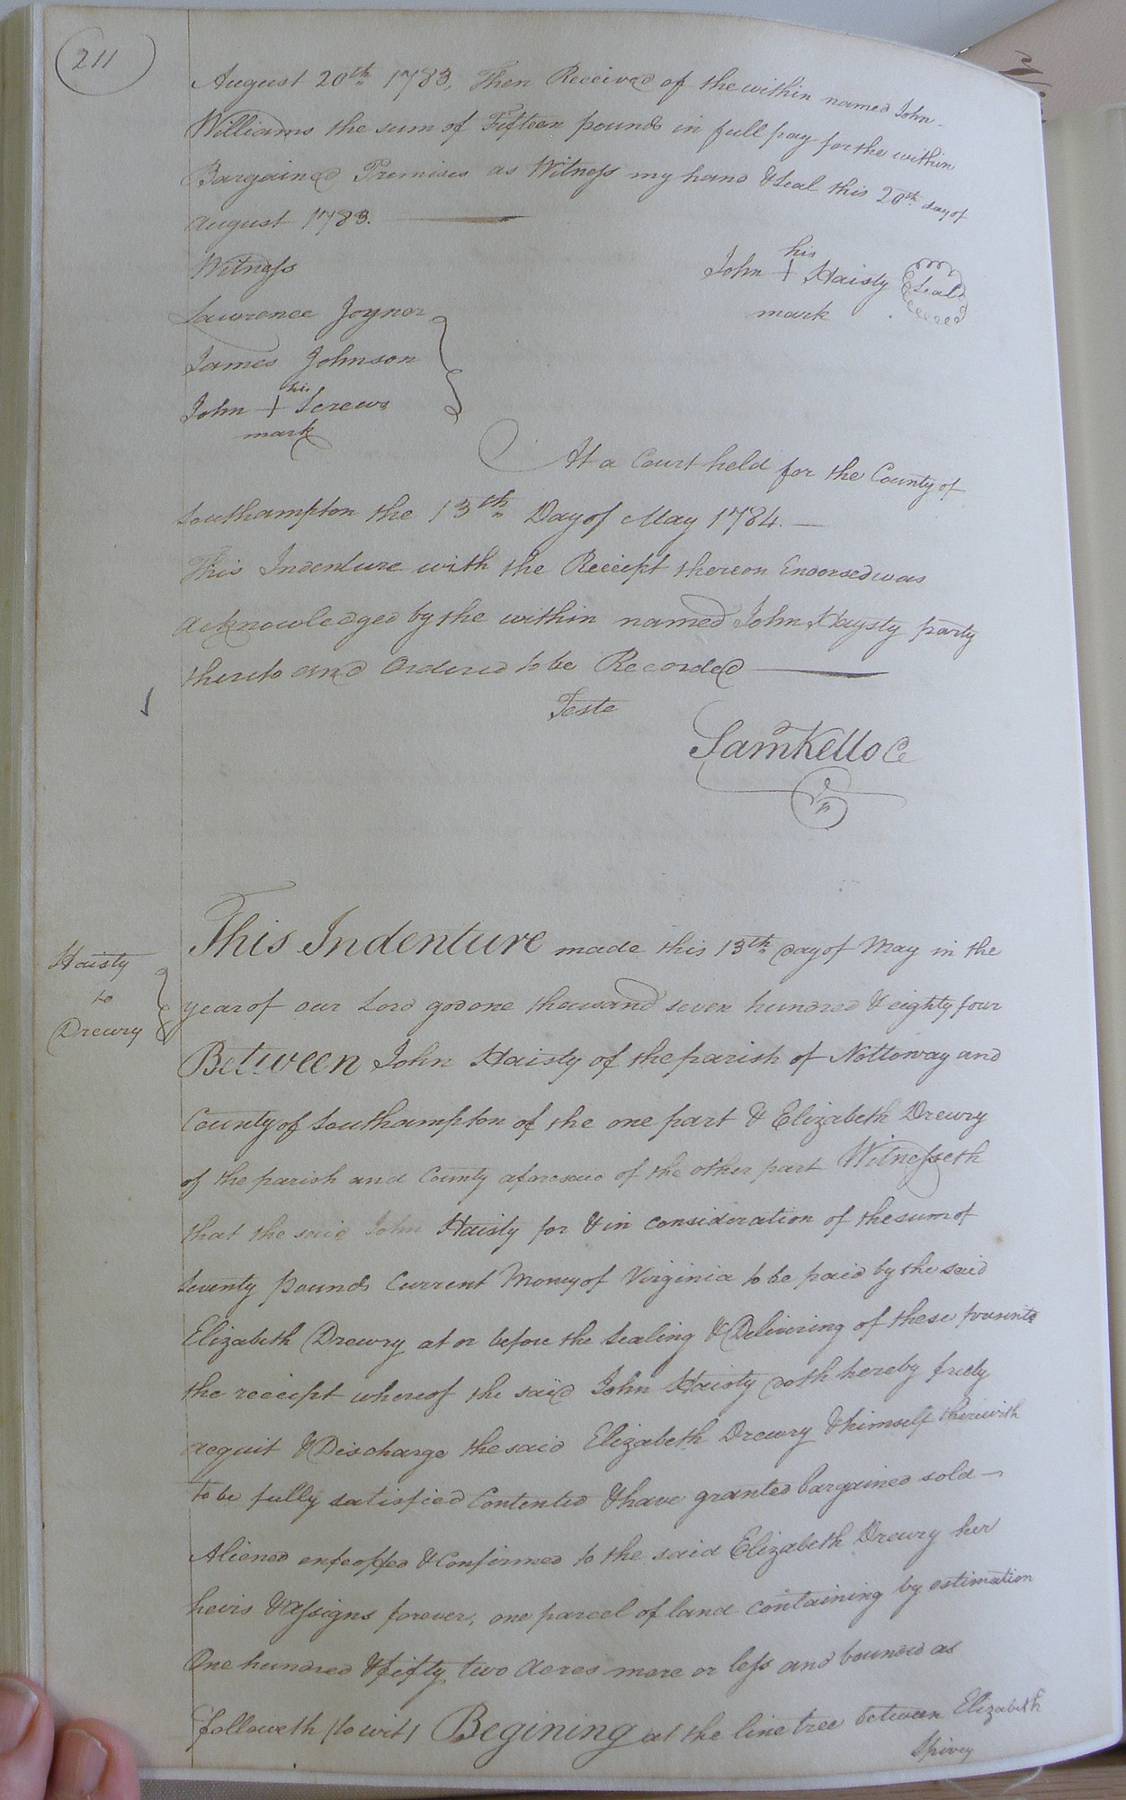 211
August 20th 1783, Then Received of the within named John
Williams the sum of Fifteen pounds in full pay for the within
Bargained Premises as Witness my hand & Seal this 20th day of
August 1783.
his
John + Haisty Seal
mark
Witness
Lawrence Joyner
James Johnson
his
John + Screws
mark
At a Court held for the County of
Southampton the 13th Day of May 1784.
This Indenture with the Receipt thereon Endorsed was
acknowledged by the within named John Haysty party
thereto and Ordered to be Recorded
Teste
Saml Kello C
Haisty
to
Drewry
This Indenture made this 13th day of May in the
year of our Lord god one thousand seven hundred & eighty four
Between John Haisty of the parish of Nottoway and
County of Southampton of the one part & Elizabeth Drewry
of the parish and County aforesaid of the other part Witnesseth
that the said John Haisty for & in consideration of the sum of
Seventy pounds Current Money of Virginia to be paid by the said
Elizabeth Drewry at or before the Sealing & Delivering of these presents
the receipt whereof the said John Haisty doth hereby freely
acquit & Discharge the said Elizabeth Drewry & himself therewith
to be fully satisfied Contented & have granted bargained sold
Aliened enfeoffed & Confirmed to the said Elizabeth Drewry her
heirs & assigns forever, one parcel of land containing by estimation
One hundred & fifty two acres more or less and bounded as
followeth (to wit) Begining at the line tree between Elizabeth
Spivey